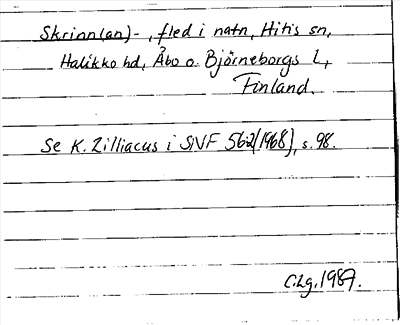 Skrinn(an)-, fled i natn, Hitis sn,
Halikko hd, Åbo o. Björneborgs l,
Finland.
Se K. Zilliacus i SNF 56:2 (1968), s. 98.
C.Lg. 1987.